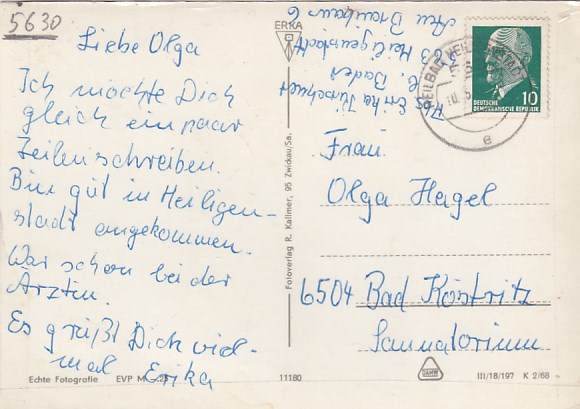 5630
Liebe Olga
Ich möchte Dich
gleich ein paar
Zeilen schreiben.
Bin gut in Heiligen-
stadt angekommen.
War schon bei der
Ärztin.
Es grüßt Dich viel-
mal Erika
Echte Fotografie EVP M
11180
Fotoverlag R. Kallmer, 95 Zwickau/Sa.
ERKA
Abs. Erika
z. Bades
Heiligenstadt
HEILBAD HEILIGENSTADT
10
e
DEUTSCHE
DEMOKRATISCHE REPUBLIK
10
Frau
Olga Hagel
6504 Bad Köstritz
Sannatorium
III/18/197 K 2/68